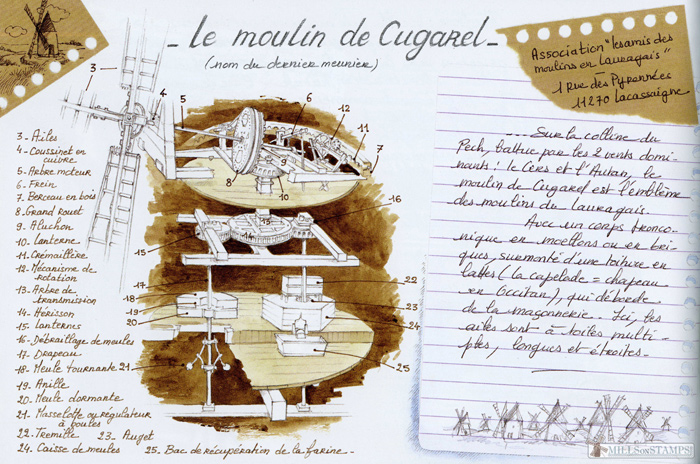 - Le moulin de Cugarel -
(nom du dernier meunier)
Association "les amis des
moulins en Lauragais"
-
1 rue des Pyrennées
11270 Lacassaigne
3 - Ailes
4 - Coussinet en
cuivre
5 - Arbre moteur
6 - Frein
7 - Berceau en bois
8 - Grand rouet
9 - Aluchon
10 - Lanterne
11 - Crémaillère
12 - Mécanisme de
rotation
13 - Arbre de
transmission
14 - Hérisson
15 - Lanternes
16 - Débraillage de meules
17 - Drapeau
18 - Meule tournante
19 - Anille
20 - Meule dormante
21 - Masselotte ou régulateur
à boules
22 - Tremille 23 - Auget
24 - Caisse de meules 25 - Bac de récupération de la farine -
3
4
5
6
12
11
7
8
9
10
13
14
15
16
17
18
19
20
21
22
23
24
25
Sur la colline du
Pech, battue par les 2 vents domi-
nants : le Cers et l'Autan, le
moulin de Cugarel est l'emblème
des moulins du Lauragais.
Avec un corps tronco-
nique en moellons ou en bri-
ques, surmonté d'une toiture en
lattes (la capelade = chapeau
en Occitan), qui déborde
de la maçonnerie. Ici, les
ailes sont à toiles multi-
ples, longues et étroites.
MILLSonSTAMPS